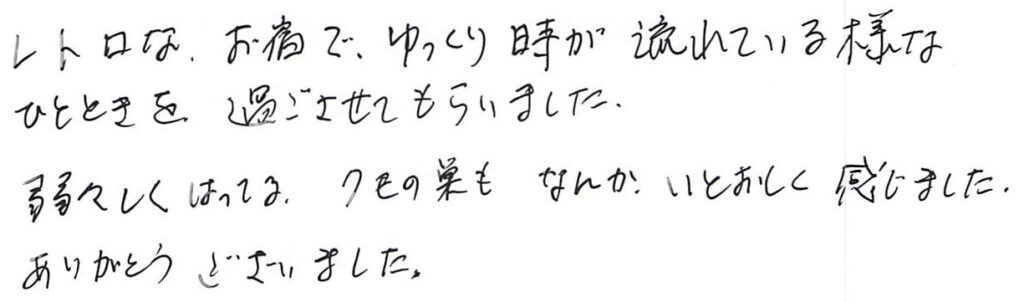 レトロな、お宿で、ゆっくり時が流れている様な
ひとときを、過ごさせてもらいました。
弱々しくはってる、クモの巣もなんか、いとおしく感じました。
ありがとうございました。